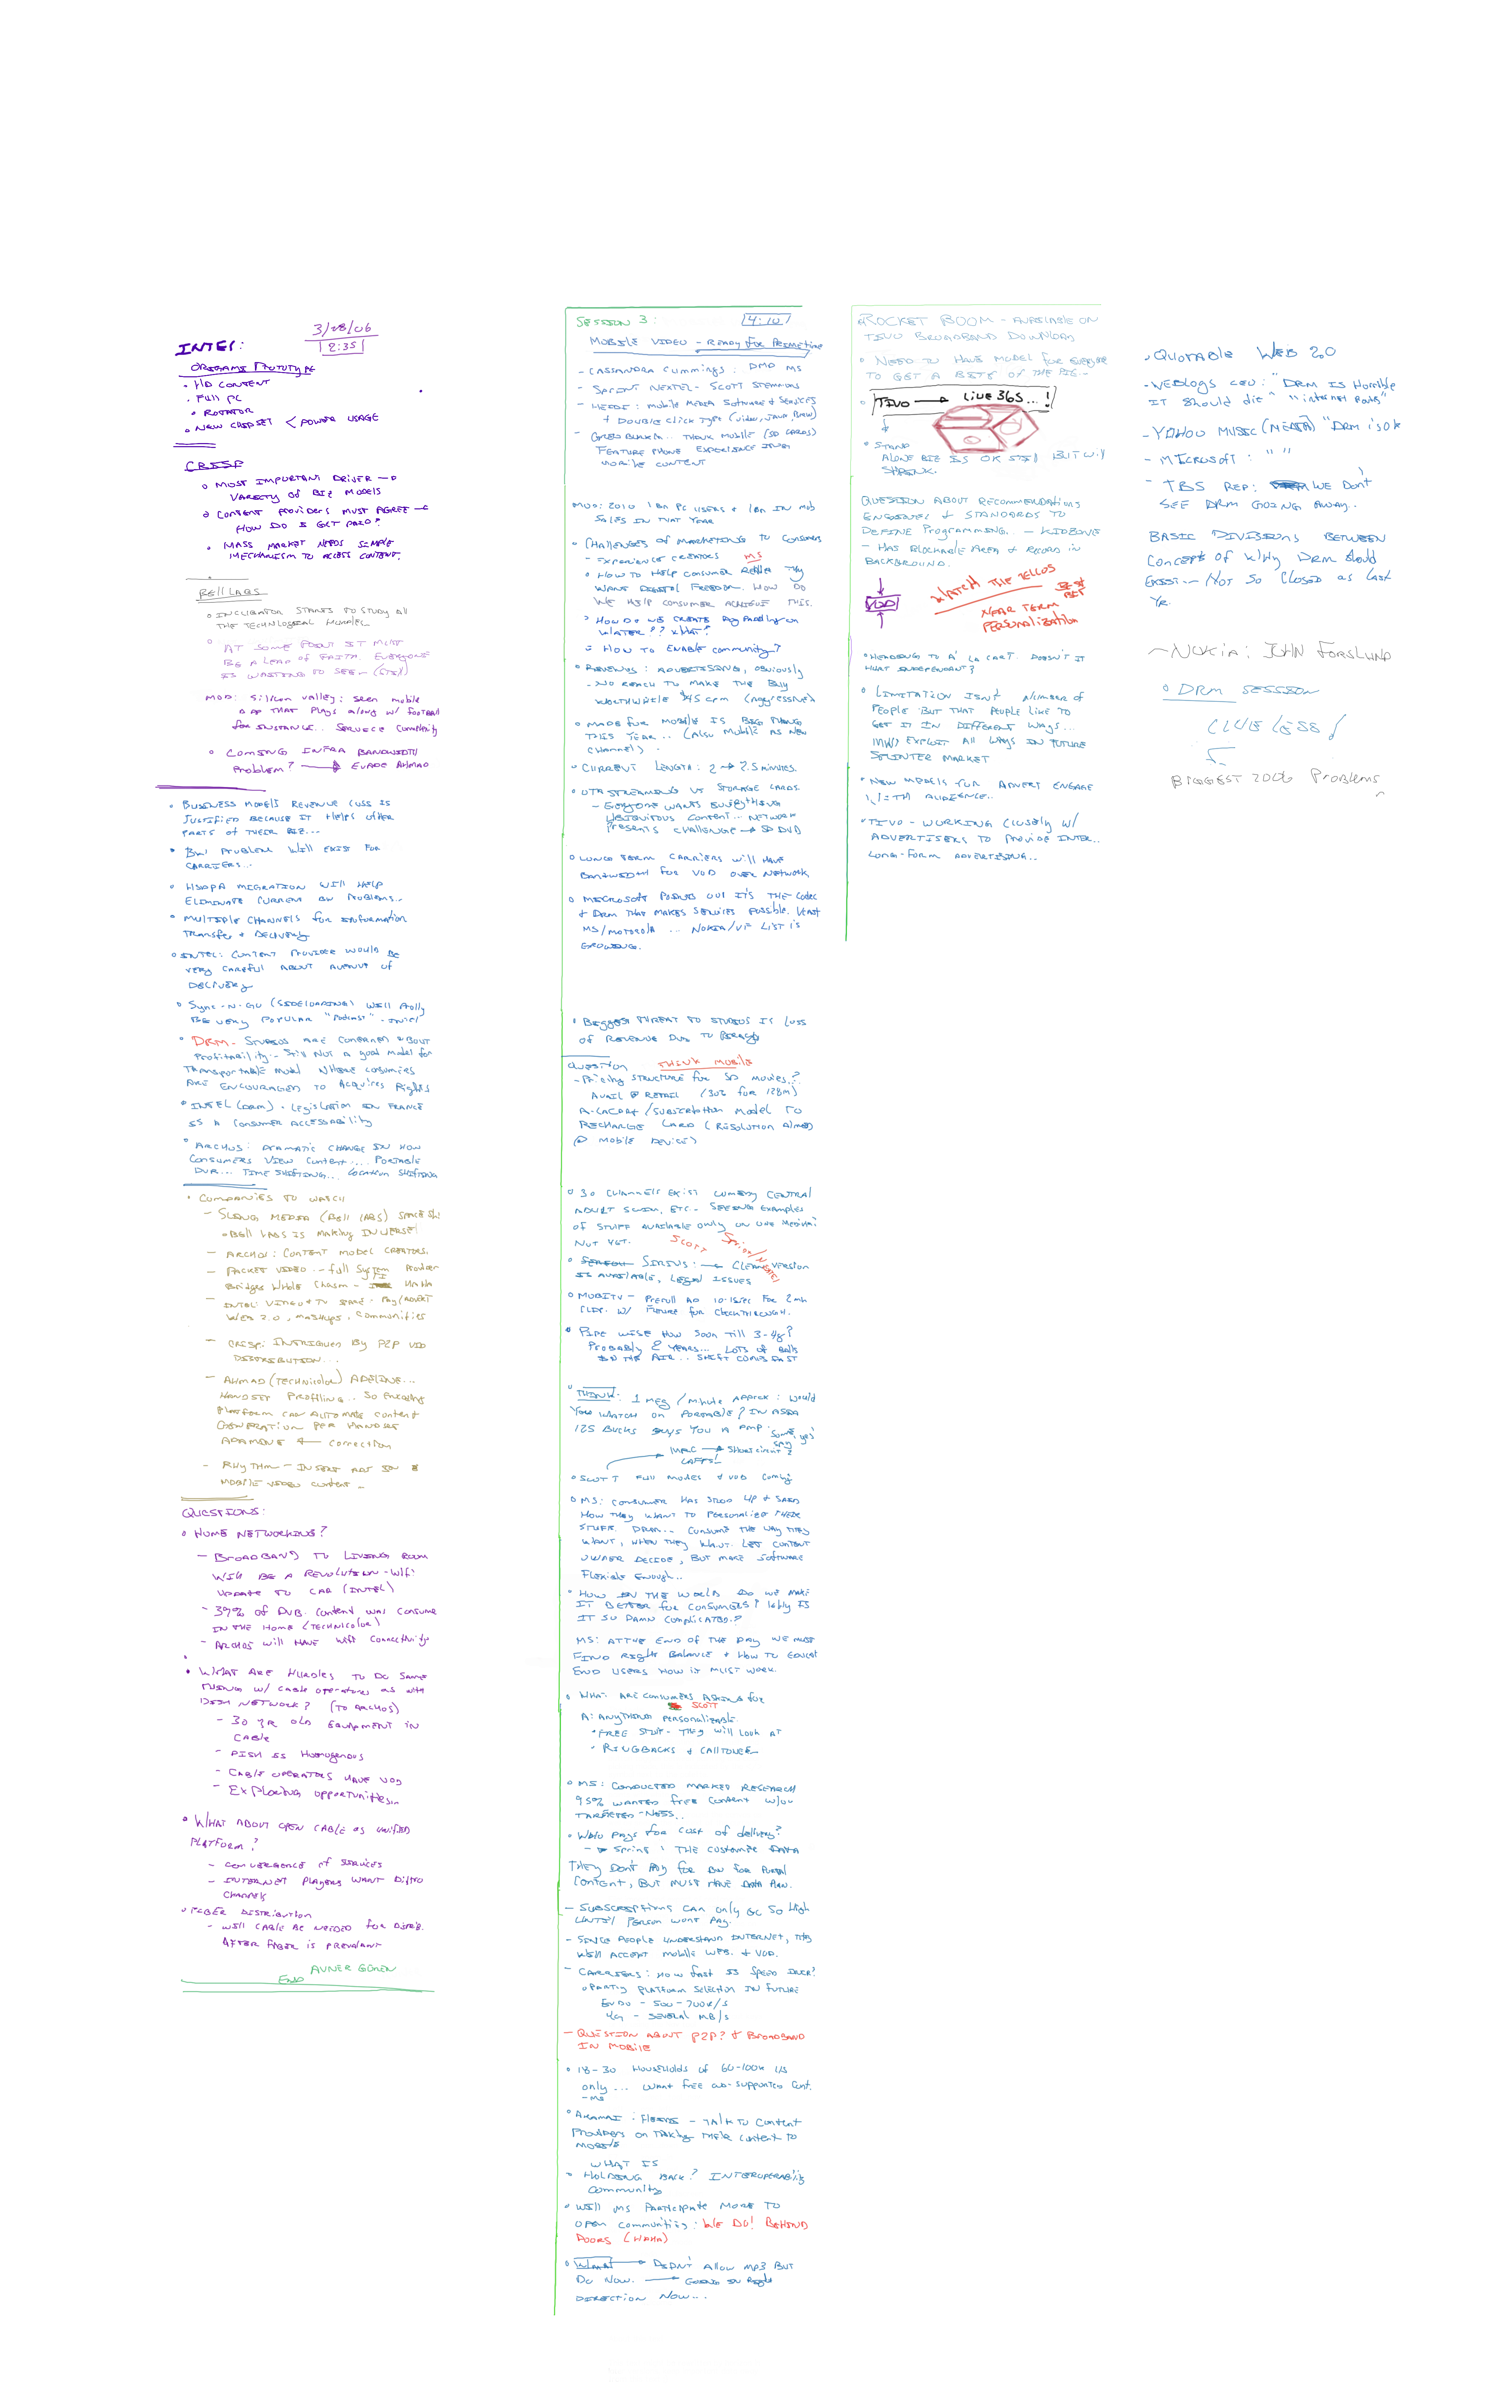 3/28/06
2:35
INTEL:
ORIGAMI PROTOTYPE
• HD CONTENT
• Full PC
• ROTATOR
• NEW CHIPSET < POWER USAGE
CRISP
• MOST IMPORTANT DRIVER →
VARIETY of BIZ MODELS
• CONTENT PROVIDERS MUST AGREE →
HOW DO I GET PAID?
• MASS MARKET NEEDS SIMPLE
MECHANISM TO ACCESS CONTENT.
BELL LABS
• INCUBATOR STARTS TO STUDY All
THE TECHNLOGICAL
• AT SOME POINT IT MUST
BE A LEAP OF FAITH. EVERYONE
IS WAITING TO SEE
MOD: Silicon Valley: seen mobile
app THAT Plays along w/ FOOTBALL
for INSTANCE.. SERVICE Complexity
• COMING INFRA BANDWIDTH
Problem? → AHMAD
• BUSINESS MODELS REVENUE LOSS IS
JUSTIFIED BECAUSE IT HELPS OTHER
PARTS of THEIR BIZ...
• BW PROBLEM WILL EXIST FOR
CARRIERS...
• HSDPA MIGRATION WILL HELP
ELIMINATE CURRENT BW PROBLEMS..
• MULTIPLE CHANNELS for INFORMATION
TRANSFER & DELIVERY
• INTEL: CONTENT PROVIDER WOULD BE
VERY CAREFUL ABOUT AVENUE of
DELIVERY
• Sync-N-GO (SIDELOADING) WILL Prolly
BE VERY POPULAR "Podcast" - INTEL
• DRM - STUDIOS ARE CONCERNED ABOUT
Profitability.. Still NOT a good Model for
TRANSPORTABLE MODEL WHERE
ARE ENCOURAGED TO Acquires Rights
• INTEL (DRM) - LEGISLATION IN FRANCE
IS A CONSUMER ACCESSABILITY
• ARCHOS: DRAMATIC CHANGE IN HOW
CONSUMERS VIEW Content... PORTABLE
DVR... TIME SHIFTING... Location SHIFTING
• COMPANIES TO WATCH
- SLING MEDIA (BELL LABS)
• BELL LABS IS MAKING INVERSE!
- ARCHOS: CONTENT MODEL CREATORS.
- PACKET VIDEO - full System PROVIDER
Bridges Whole Chasm
- INTEL: VIIV & TV
WEB 2.0, MASHUPS, COMMUNITIES
- CRISP: INTRIGUED By P2P VID
DISTRIBUTION...
- AHMAD (TECHNICOLOR)
HANDSET PROFILING.. SO ENCODING
PLATFORM CAN AUTOMATE content
GENERATION PER HANDSET
← CORRECTION
- RHYTHM - INSERT ADS IN
MOBILE VIDEO content..
QUESTIONS:
• HOME NETWORKING?
- BROADBAND TO LIVING ROOM
WILL BE A REVOLUTION - WiFi
UPDATE TO CAR (INTEL)
- 39% of DVR content WAS CONSUME
IN THE HOME (TECHNICOLOR)
- ARCHOS WILL HAVE WiFi CONNECTIVITY
• WHAT ARE HURDLES TO DO SAME
THING w/ CABLE OPERATORS AS with
DISH NETWORK? (TO ARCHOS)
- 30 YR OLD EQUIPMENT IN
CABLE
- DISH IS Homogenous
- CABLE OPERATORS HAVE VOD
- Exploring opportunities...
• WHAT ABOUT OPEN CABLE AS UNIFIED
PLATFORM?
- CONVERGENCE of SERVICES
- INTERNET PLAYERS WANT DISTRO
CHANNEL
• FIBER DISTRIBUTION
- WILL CABLE BE NEEDED for DISTRIB.
AFTER FIBER IS PREVALANT
AVNER GOREN
END
SESSION 3:
4:10
MOBILE VIDEO - READY for PRIMETIME
- CASSANDRA CUMMINGS: DMD MS
- SPRINT NEXTEL - SCOTT STEMMONS
: MOBILE MEDIA SOFTWARE & SERVICES
+ DOUBLE CLICK TYPE (VIDEO, JAVA, BREW)
- THINK MOBILE (SD CARDS)
FEATURE PHONE EXPERIENCE
MOBILE CONTENT
MOD: 2010 1 Bn PC USERS & 1 Bn IN MOB
SALES IN THAT YEAR
• CHALLENGES of MARKETING TO CONSUMERS
- EXPERIENCE CREATORS MS
• HOW TO HELP CONSUMER REALIZE THEY
WANT DIGITAL FREEDOM. HOW DO
WE HELP CONSUMER ACHIEVE THIS.
• HOW DO WE CREATE
LATER?? WHAT?
• HOW TO ENABLE COMMUNITY?
• REVENUE: ADVERTISING, OBVIOUSLY
- NO REACH TO MAKE THE BUY
WORTHWHILE $45 CPM (AGGRESSIVE)
• MADE FOR MOBILE IS BIG THING
THIS YEAR... (ALSO MOBILE AS NEW
CHANNEL).
• CURRENT LENGTH: 2 → 2.5 MINUTES.
• OTA STREAMING VS STORAGE CARDS.
- EVERYONE WANTS EVERYTHING
UBIQUITOUS CONTENT... NETWORK
PRESENTS CHALLENGE → SD DVD
• LONG TERM CARRIERS WILL HAVE
BANDWIDTH FOR VOD OVER NETWORK
• MICROSOFT POINTS OUT IT'S THE CODEC
& DRM THAT MAKES SERVICES POSSIBLE.
MS/MOTOROLA ... NOKIA/ LIST IS
GROWING.
• BIGGEST THREAT TO STUDIOS IS LOSS
OF REVENUE DUE TO PIRACY
QUESTION THINK MOBILE
- Pricing STRUCTURE for SD MOVIES?
AVAIL @ RETAIL (30% for 128M)
A-LACART/SUBSCRIPTION MODEL TO
RECHARGE CARD (RESOLUTION AIMED
@ MOBILE DEVICE)
• 30 CHANNELS EXIST COMEDY CENTRAL
ADULT SWIM, ETC - SEEING EXAMPLES
OF STUFF AVAILABLE ONLY ON ONE MEDIUM?
NOT YET. SCOTT SPRINT/NEXTEL
• SIRIUS: → CLEAN VERSION
IS AVAILABLE, LEGAL ISSUES
• MOBITV - PREROLL AD 10-15SEC FOR 2MIN
CLIP. W/ FEATURE FOR CLICKTHROUGH.
• PIPE WISE HOW SOON TILL 3-4G?
PROBABLY 2 YEARS... LOTS OF BALLS
IN THE AIR... SHIFT COMES FAST
• THINK: 1 MEG/MINUTE APPROX: WOULD
YOU WATCH ON PORTABLE? IN ASIA
125 BUCKS BUYS YOU A PMP. Some say yes
→ SHORT CIRCUIT 2
LAFFS!
• SCOTT FULL MOVIES & VOD COMING
• MS: CONSUMER HAS STOOD UP & SAID
HOW THEY WANT TO PERSONALIZED THEIR
STUFF. DRM... CONSUME THE WAY THEY
WANT, WHEN THEY WANT. LET CONTENT
OWNER DECIDE, BUT MAKE SOFTWARE
FLEXIBLE ENOUGH...
• HOW IN THE WORLD DO WE MAKE
IT BETTER for CONSUMERS? WHY IS
IT SO DAMN COMPLICATED?
MS: AT THE END OF THE DAY WE MUST
FIND RIGHT BALANCE & HOW TO EDUCATE
END USERS HOW IT MUST WORK.
• WHAT ARE CONSUMERS ASKING for
SCOTT
A: ANYTHING PERSONALIZABLE.
• FREE STUFF - THEY WILL LOOK AT
• RINGBACKS & CALLTONES
• MS: CONDUCTED MARKET RESEARCH
95% WANTED free CONTENT W/OU
TARGETED-NESS..
• WHO PAYS for COST of delivery?
→ SPRINT: THE CUSTOMER
THEY DON'T PAY for BW FOR PORTAL
CONTENT, BUT MUST HAVE DATA PLAN.
- SUBSCRIPTIONS CAN ONLY GO SO HIGH
UNTIL PERSON WONT PAY.
- SINCE PEOPLE UNDERSTAND INTERNET, THEY
WILL ACCEPT MOBILE WEB. & VOD.
- CARRIERS: HOW FAST IS SPEED INCR?
PLATFORM SELECTION IN FUTURE
EVDO - 500-700K/S
4G - SEVERAL MB/S
- QUESTION ABOUT P2P? & BROADBAND
IN MOBILE
• 18-30 HOUSEHOLDS OF 60-100K US
ONLY... WANT FREE AD-SUPPORTED CONT.
- MS
• AKAMAI: - TALK TO CONTENT
PROVIDERS ON TAKING THEIR CONTENT TO
MOBILE
WHAT IS
• HOLDING BACK? INTEROPERABILITY
COMMUNITY
• WILL MS PARTICIPATE MORE TO
OPEN COMMUNITIES: WE DO! BEHIND
DOORS (HAHA)
• → DIDN'T ALLOW MP3 BUT
DO NOW. → GOING IN RIGHT
DIRECTION NOW...
ROCKET BOOM - AVAILABLE ON
TIVO BROADBAND DOWNLOAD
• NEED TO HAVE MODEL for EVERYONE
TO GET A BITE OF THE PIE..
• TIVO → LIVE 365...!
• STAND
ALONE BIZ IS OK STILL BUT WILL
SHRINK.
QUESTION ABOUT RECOMMENDATIONS
ENGINE & STANDARDS TO
DEFINE PROGRAMMING. - KIDZONE
- HAS BLOCKABLE AREA & RECORD IN
BACKGROUND.
VOD
WATCH THE TELCOS
BEST
BET
NEAR TERM
PERSONALIZATION
• HEADING TO A' LA CART. DOESN'T IT
HURT INDEPENDANT?
• LIMITATION ISN'T NUMBER of
PEOPLE BUT THAT PEOPLE LIKE TO
GET IT IN DIFFERENT WAYS...
EXPLOIT ALL WAYS IN FUTURE
SPLINTER MARKET
• NEW MODELS FOR ADVERT ENGAGE
WITH AUDIENCE..
• TIVO - WORKING CLOSELY W/
ADVERTISERS TO PROVIDE INTER..
LONG-FORM ADVERTISING..
• QUOTABLE WEB 2.0
- WEBLOGS CEO: "DRM IS HORRIBLE
IT SHOULD DIE"
- YAHOO MUSIC "DRM is OK
- MICROSOFT: " "
- TBS REP: WE DON'T
SEE DRM GOING AWAY..
BASIC DIVISIONS BETWEEN
CONCEPT of WHY DRM SHOULD
EXIST.. NOT SO CLOSED AS LAST
YR.
~NOKIA: JOHN FORSLUND
• DRM SESSION
CLUELESS!
BIGGEST 2006 PROBLEMS